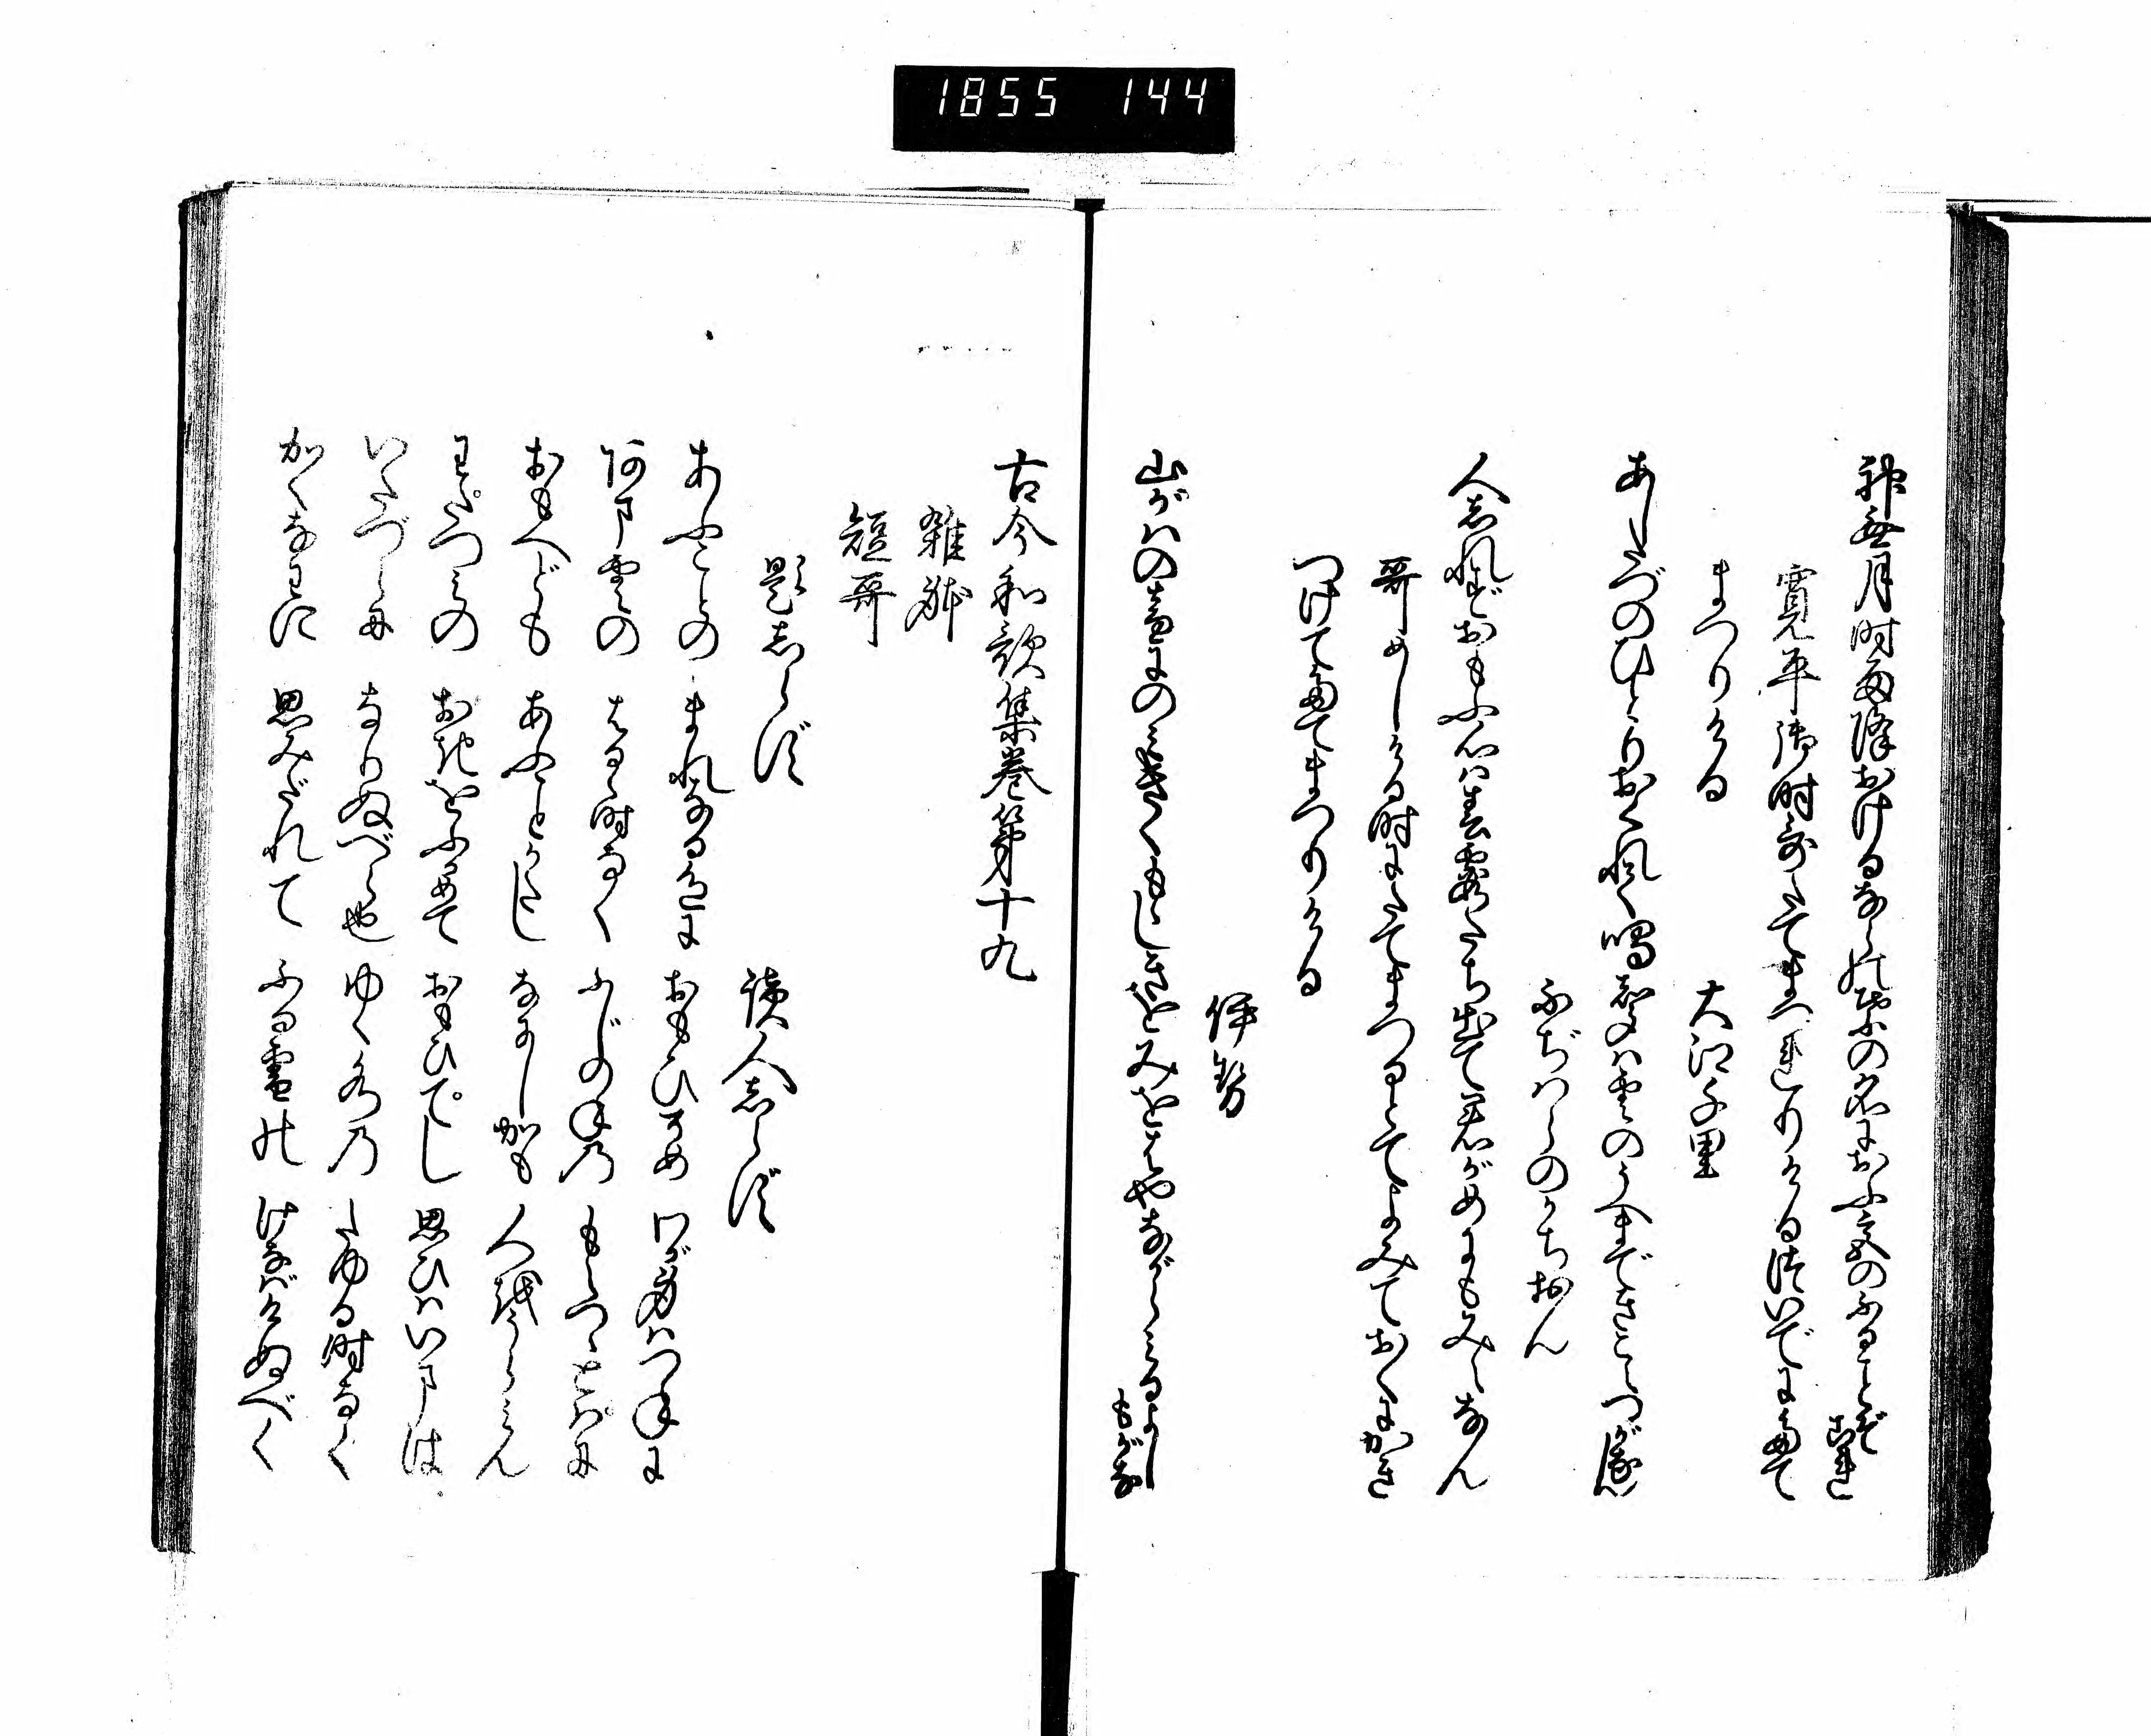 1855 144
神無月時雨降おけるならの葉の名におふ宮のふることぞこれ
寛平御時哥たてまつりけるついでにたて
まつりける
大江千里
あしたづのひとりおくれて鳴声は雲のうへまできこえつがなん
ふぢはらのかちおん
人しれずおもふ心は春霞たち出て君がめにもみえなん
哥めしける時にたてまつるとてよみておくにかき
つけてたてまつりける
伊勢
山がはの音にのみきくももしきを身をはやながらみるよしもがな
古今和歌集巻第十九
雑躰
短哥
題しらず
読人しらず
あふことの まれなる色に おもひそめ わが身はつねに
あま雲の はるゝ時なく ふじのねの もえつゝとはに
おもへども あふことかたし なにしかも 人をうらみん
わたつみの おきをふかめて おもひてし 思ひはいまは
いたづらに なりぬべら也 ゆく水の たゆる時なく
かくなわに 思みだれて ふる雪の けなばけぬべく